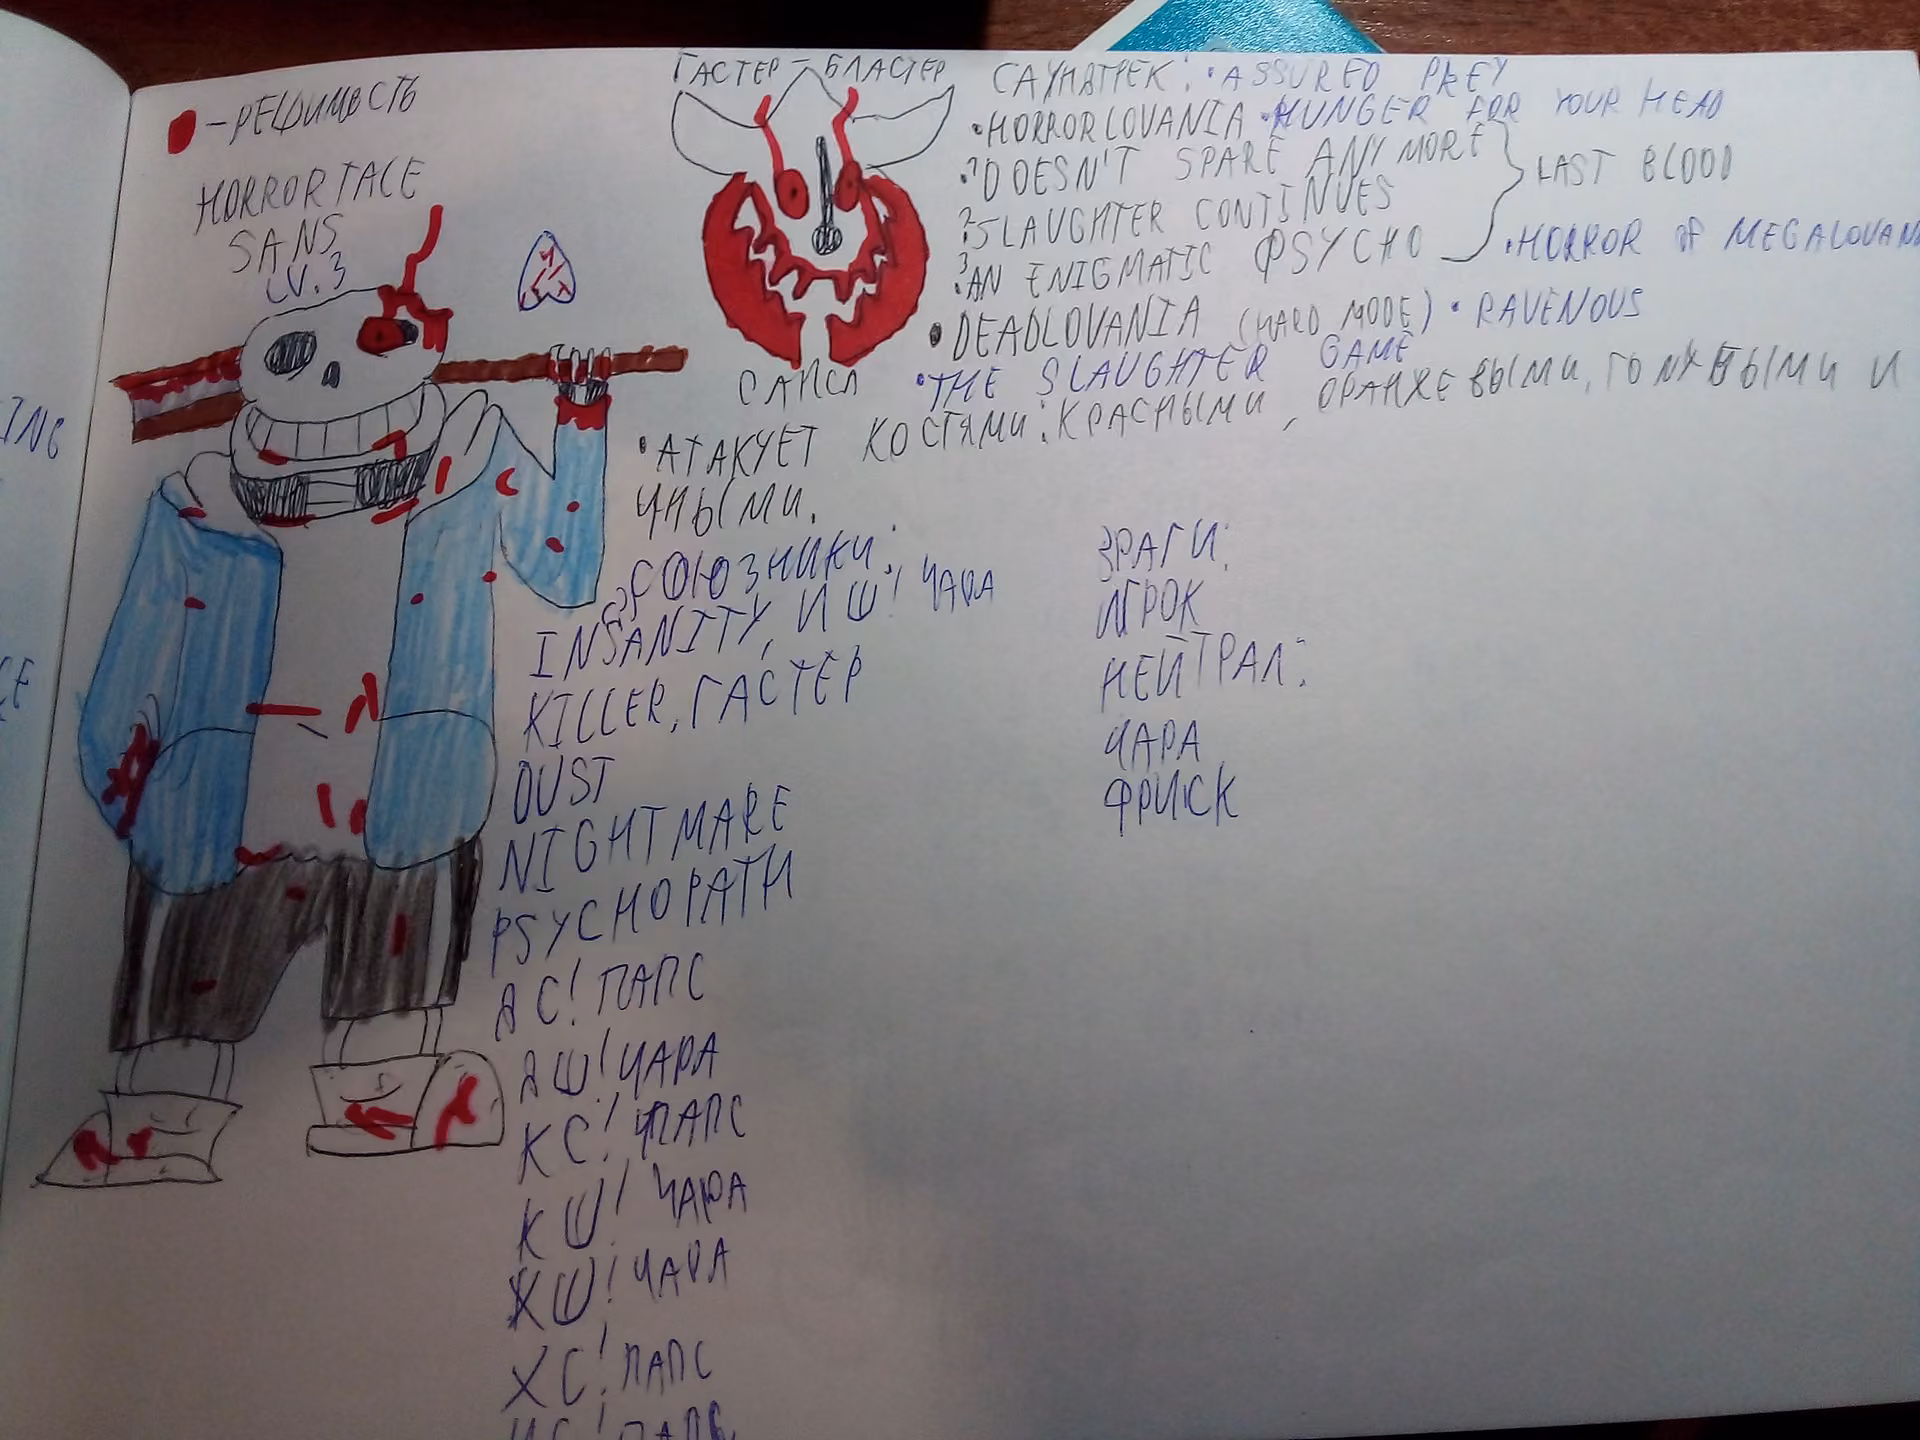 ING
CE
- РЕШИМОСТЬ
HORRORTALE
SANS
LV.3
ГАСТЕР-БЛАСТЕР
САПСА
САУНДТРЕК: • ASSURED PREY
• HORRORLOVANIA • HUNGER FOR YOUR HEAD
1. DOESN'T SPARE ANYMORE
2. SLAUGHTER CONTINUES
3. AN ENIGMATIC PSYCHO
LAST BLOOD
• HORROR OF MEGALOVAN
• DEADLOVANIA (HARD MODE) • RAVENOUS
• THE SLAUGHTER GAME
• АТАКУЕТ КОСТЯМИ: КРАСНЫМИ, ОРАНЖЕВЫМИ, ГОЛУБЫМИ И
ЧНЫМИ.
СОЮЗНИКИ:
INSANITY, ИШ! ЧАРА
KILLER, ГАСТЕР
DUST
NIGHTMARE
PSYCHOPATH
ДС! ПАПС
ДШ! ЧАРА
КС! ПАПС
КШ! ЧАРА
ХШ! ЧАРА
ХС! ПАПС
ИС! ПАПС
ВРАГИ:
ИГРОК
НЕЙТРАЛ:
ЧАРА
ФРИСК